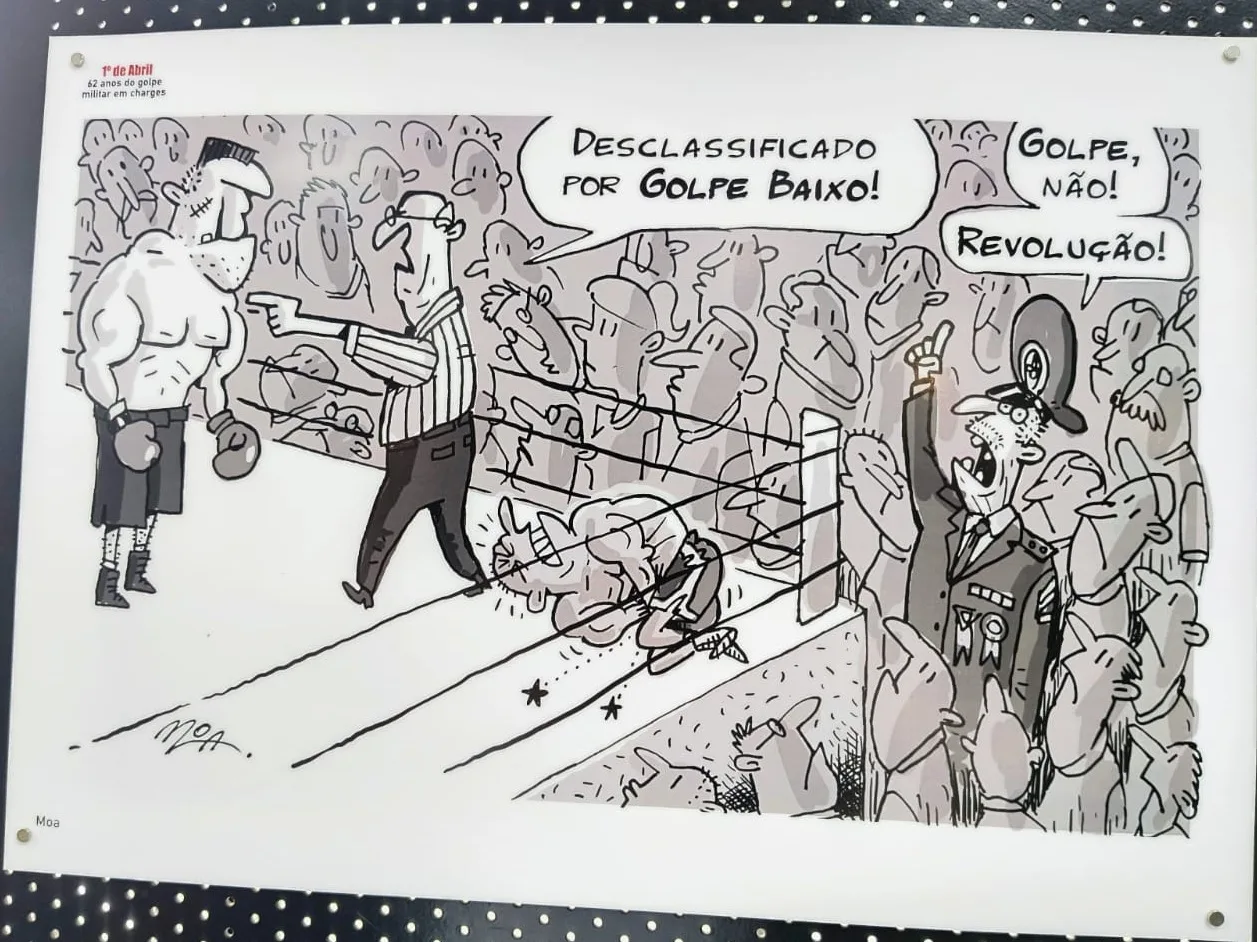 1º de Abril
62 anos do golpe
militar em charges
DESCLASSIFICADO
POR GOLPE BAIXO!
GOLPE,
NÃO!
REVOLUÇÃO!
MOA
Moa